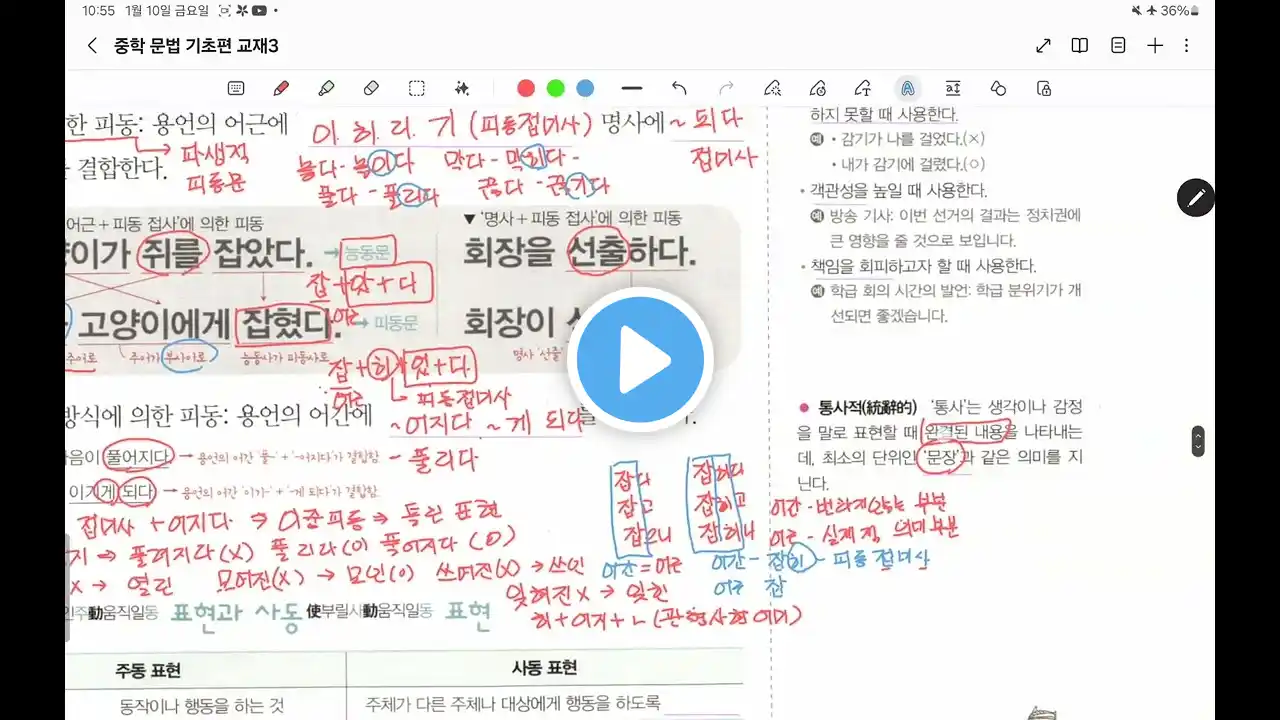 10:55 1월 10일 금요일
36%
중학 문법 기초편 교재3
한 피동: 용언의 어근에 이. 히. 리. 기 (피동접미사) 명사에 ~ 되다
결합한다. 파생적 피동문
놓다 - 놓이다 막다 - 막히다 -
접미사
풀다 - 풀리다 끊다 - 끊기다
어근 + 피동 접사'에 의한 피동
양이가 쥐를 잡았다. → 능동문
잡 + 았 + 다
어근
고양이에게 잡혔다. → 피동문
주어로 주어가 부사어로 능동사가 피동사로
잡 + 히 + 었 + 다
어근 피동접미사
▼ '명사 + 피동 접사'에 의한 피동
회장을 선출하다.
회장이
명사 '선출'
방식에 의한 피동: 용언의 어간에 ~어지다 ~게 되다를
풀어지다 → 용언의 어간 '풀-' + '-어지다'가 결합함 - 풀리다
이기게 되다 → 용언의 어간 '이기-' + '-게 되다'가 결합함
접미사 + 어지다 ⇒ 이중피동 ⇒ 틀린 표현
지 ⇒ 풀려지다 (X) 풀리다 (O) 풀어지다 (O)
X → 열린 모여진(X) → 모인(O) 쓰여진(X) → 쓰인
잊혀진 X → 잊힌
히 + 어지 + ㄴ (관형사형 어미)
잡다 잡히다
잡고 잡히고
잡으니 잡히니
어간 = 어근 어간 - 잡히 - 피동 접미사
어근 잡
어간 - 변하지 않는 부분
어근 - 실제적 의미 부분
주動움직일동 표현과 사동 使부릴사動움직일동 표현
주동 표현 사동 표현
동작이나 행동을 하는 것 주체가 다른 주체나 대상에게 행동을 하도록
하지 못할 때 사용한다.
예 • 감기가 나를 걸었다.(×)
• 내가 감기에 걸렸다.(○)
• 객관성을 높일 때 사용한다.
예 방송 기사: 이번 선거의 결과는 정치권에
큰 영향을 줄 것으로 보입니다.
• 책임을 회피하고자 할 때 사용한다.
예 학급 회의 시간의 발언: 학급 분위기가 개
선되면 좋겠습니다.
● 통사적(統辭的) '통사'는 생각이나 감정
을 말로 표현할 때 완결된 내용을 나타내는
데, 최소의 단위인 '문장'과 같은 의미를 지
닌다.